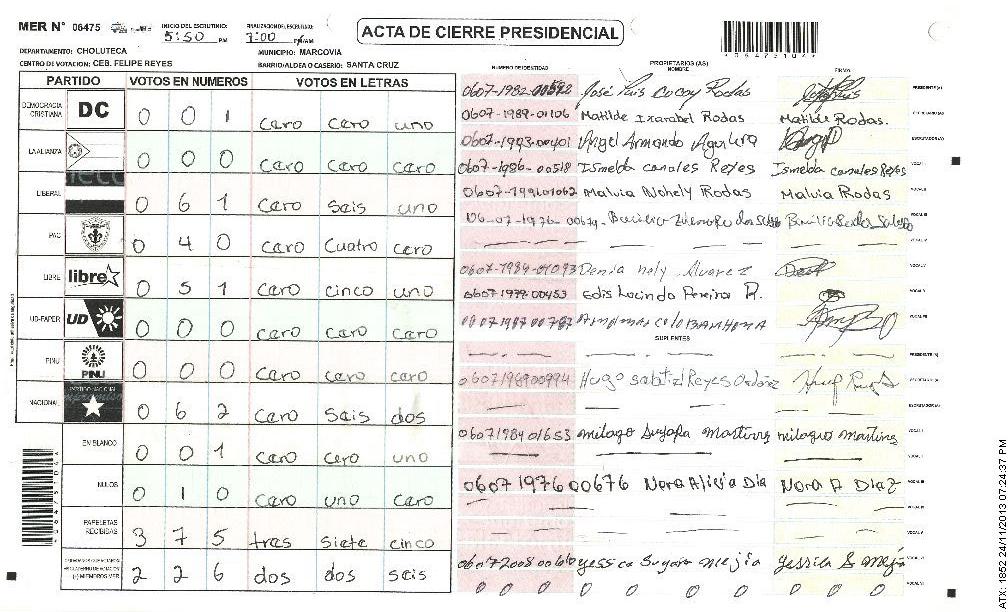 MER N° 06475
INICIO DEL ESCRUTINIO: 5:50 PM
FINALIZACION DEL ESCRUTINIO: 7:00 PM/AM
ACTA DE CIERRE PRESIDENCIAL
DEPARTAMENTO: CHOLUTECA
MUNICIPIO: MARCOVIA
CENTRO DE VOTACION: CEB. FELIPE REYES
BARRIO/ALDEA O CASERIO: SANTA CRUZ
PARTIDO VOTOS EN NUMEROS VOTOS EN LETRAS
DEMOCRACIA CRISTIANA DC 0 0 1 caro caro uno
LA ALIANZA 0 0 0 caro caro caro
LIBERAL 0 6 1 caro sais uno
PAC 0 4 0 caro cuatro caro
LIBRE libre 0 5 1 caro cinco uno
UD-FAPER UD 0 0 0 caro caro caro
PINU PINU 0 0 0 caro caro caro
NACIONAL 0 6 2 caro sais dos
EN BLANCO 0 0 1 caro cero uno
NULOS 0 1 0 caro uno caro
PAPELETAS RECIBIDAS 3 7 5 tras siete cinco
(+) MIEMBROS MER 2 2 6 dos dos seis
NUMERO DE IDENTIDAD
PROPIETARIOS (AS)
NOMBRE
FIRMA
José Luis Rodas PRESIDENTE (A)
0607-1989-01106 Matilde Rodas Matilde Rodas.
0607-1993-00401 Angel Armando Aguilera
0607-1986-00518 Ismelda canales Reyes Ismelda canales Reyes
Malvia Nohely Rodas Malvia Rodas
0607-1984-01093 Denia nely Alvarez
0607-1979-00453 Edis Lucinda Pereira R.
SUPLENTES
PRESIDENTE (A)
0607198900994 Hugo Reyes Ordoñez
0607198401653 milagro Suyapa martinez milagro martinez
0607197600676 Nora Alicia Dia Nora A Diaz
Suyapa mejia yessica S mejia
0 0 0 0 0 0 0 0 0 0
ATX: 1852 24/11/2013 07:24:37 PM